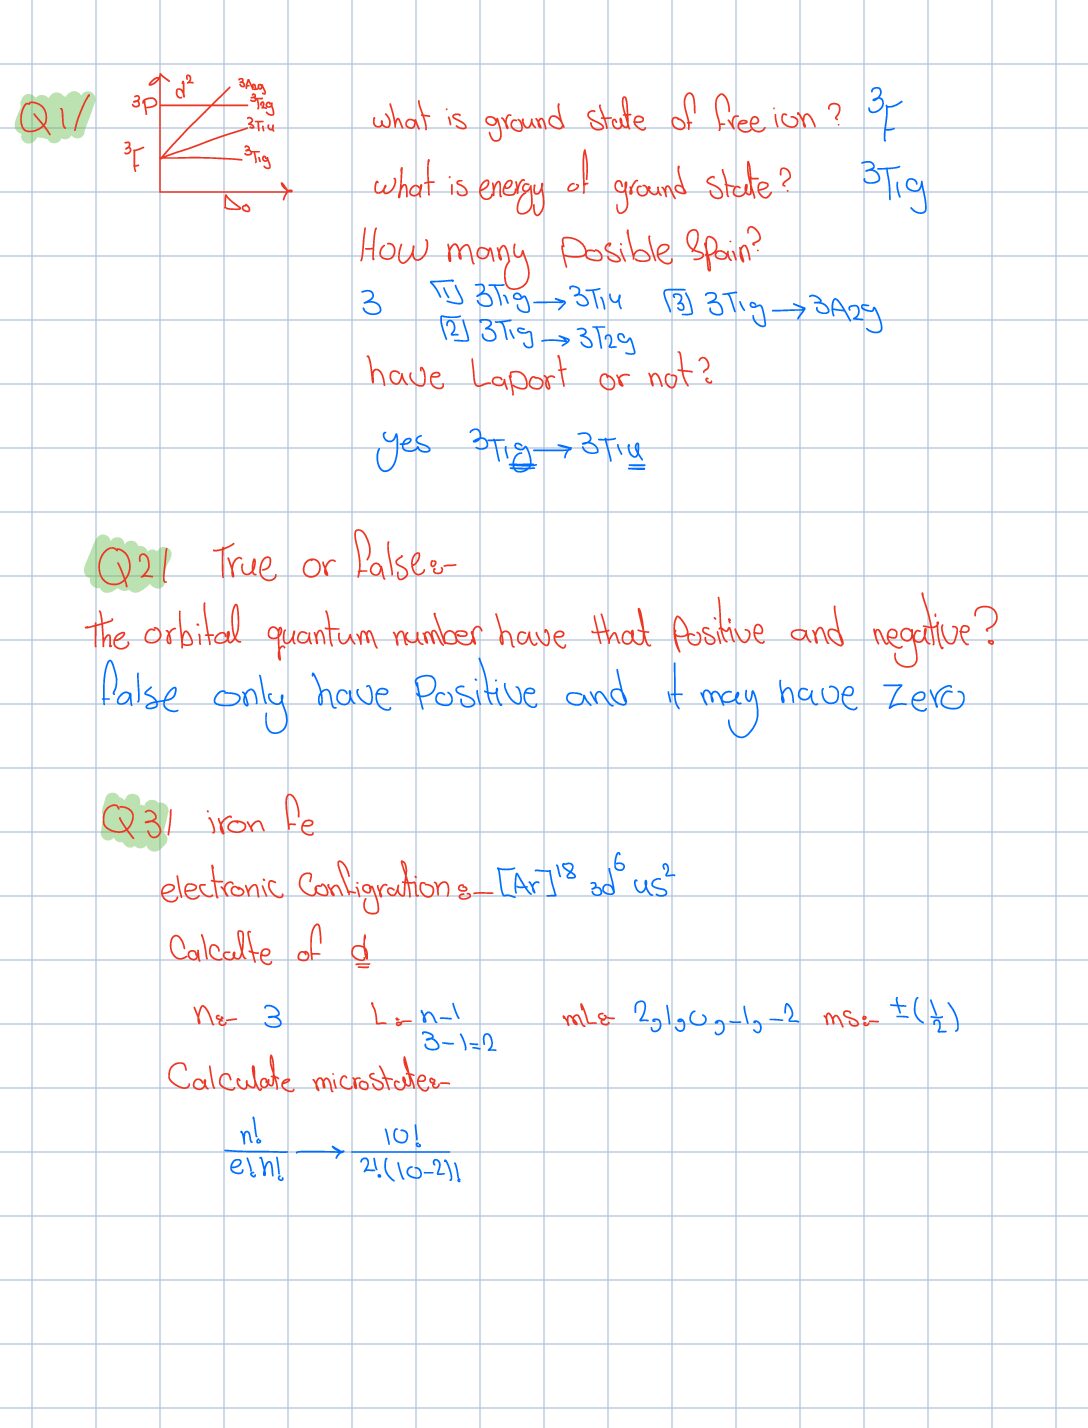 Q1/
d²
³P
³A2g
³T2g
³T1u
³F
³T1g
Δo
what is ground state of free ion? ³F
what is energy of ground state? ³T1g
How many posible Spain?
3 [1] 3T1g → 3T1u [3] 3T1g → 3A2g
[2] 3T1g → 3T2g
have Laport or not?
yes 3T1g → 3T1u
Q2/ True or false:-
the orbital quantum number have that positive and negative?
false only have Positive and it may have zero
Q3/ iron fe
electronic Configration:- [Ar]¹⁸ 3d⁶ 4s²
Calcalte of d
n:- 3 L:- n-1 mL: 2,1,0,-1,-2 ms:- ±(1/2)
3-1=2
Calculate microstate:-
n!/e!h! → 10!/2!(10-2)!